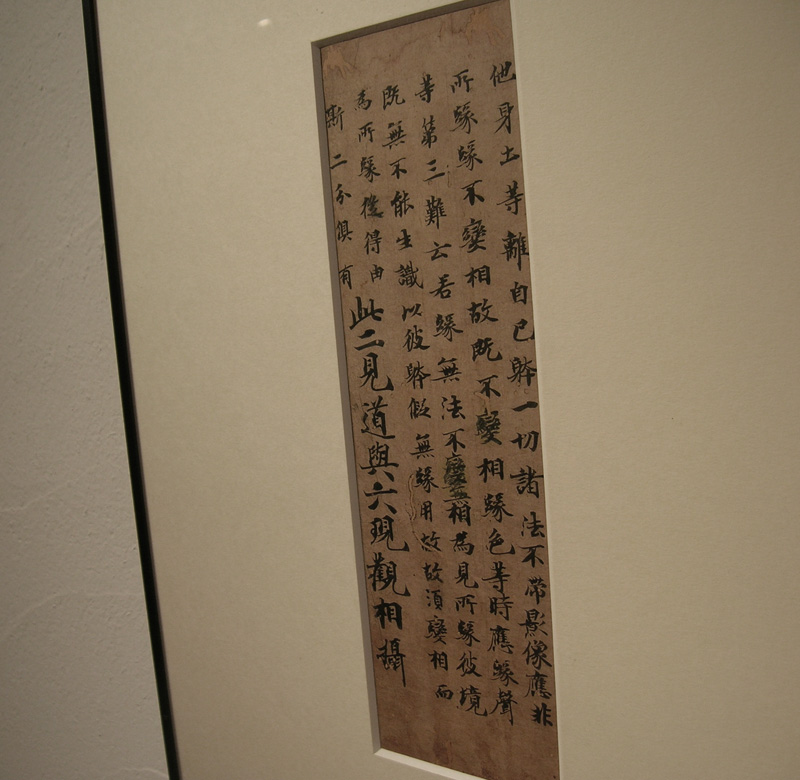 他身土等離自己躰一切諸法不帶影像應非
所緣緣不變相故既不變相緣色等時應緣聲
等第三難云若緣無法不變相為見所緣彼境
既無不能生識以彼躰假無緣用故故須變相而
為所緣後得由
斯二分俱有
此二見道與六現觀相攝